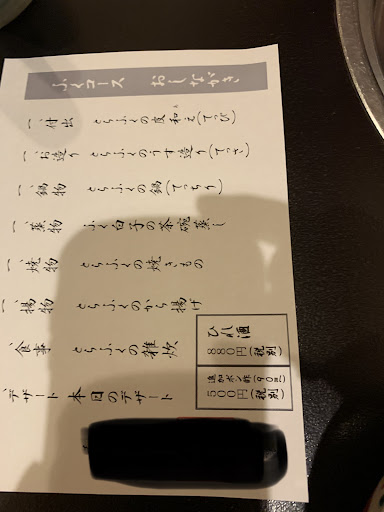 ふくコース　おしながき
一、付出　とらふくの皮和え(てっぴ)
一、お造り　とらふくのうす造り(てっさ)
一、鍋物　とらふくの鍋(てっちり)
一、蒸物　ふく白子の茶碗蒸し
一、焼物　とらふくの焼きもの
一、揚物　とらふくのから揚げ
、食事　とらふくの雑炊
デザート　本日のデザート
ひれ酒
880円(税別)
追加ポン酢(90ml)
500円(税別)